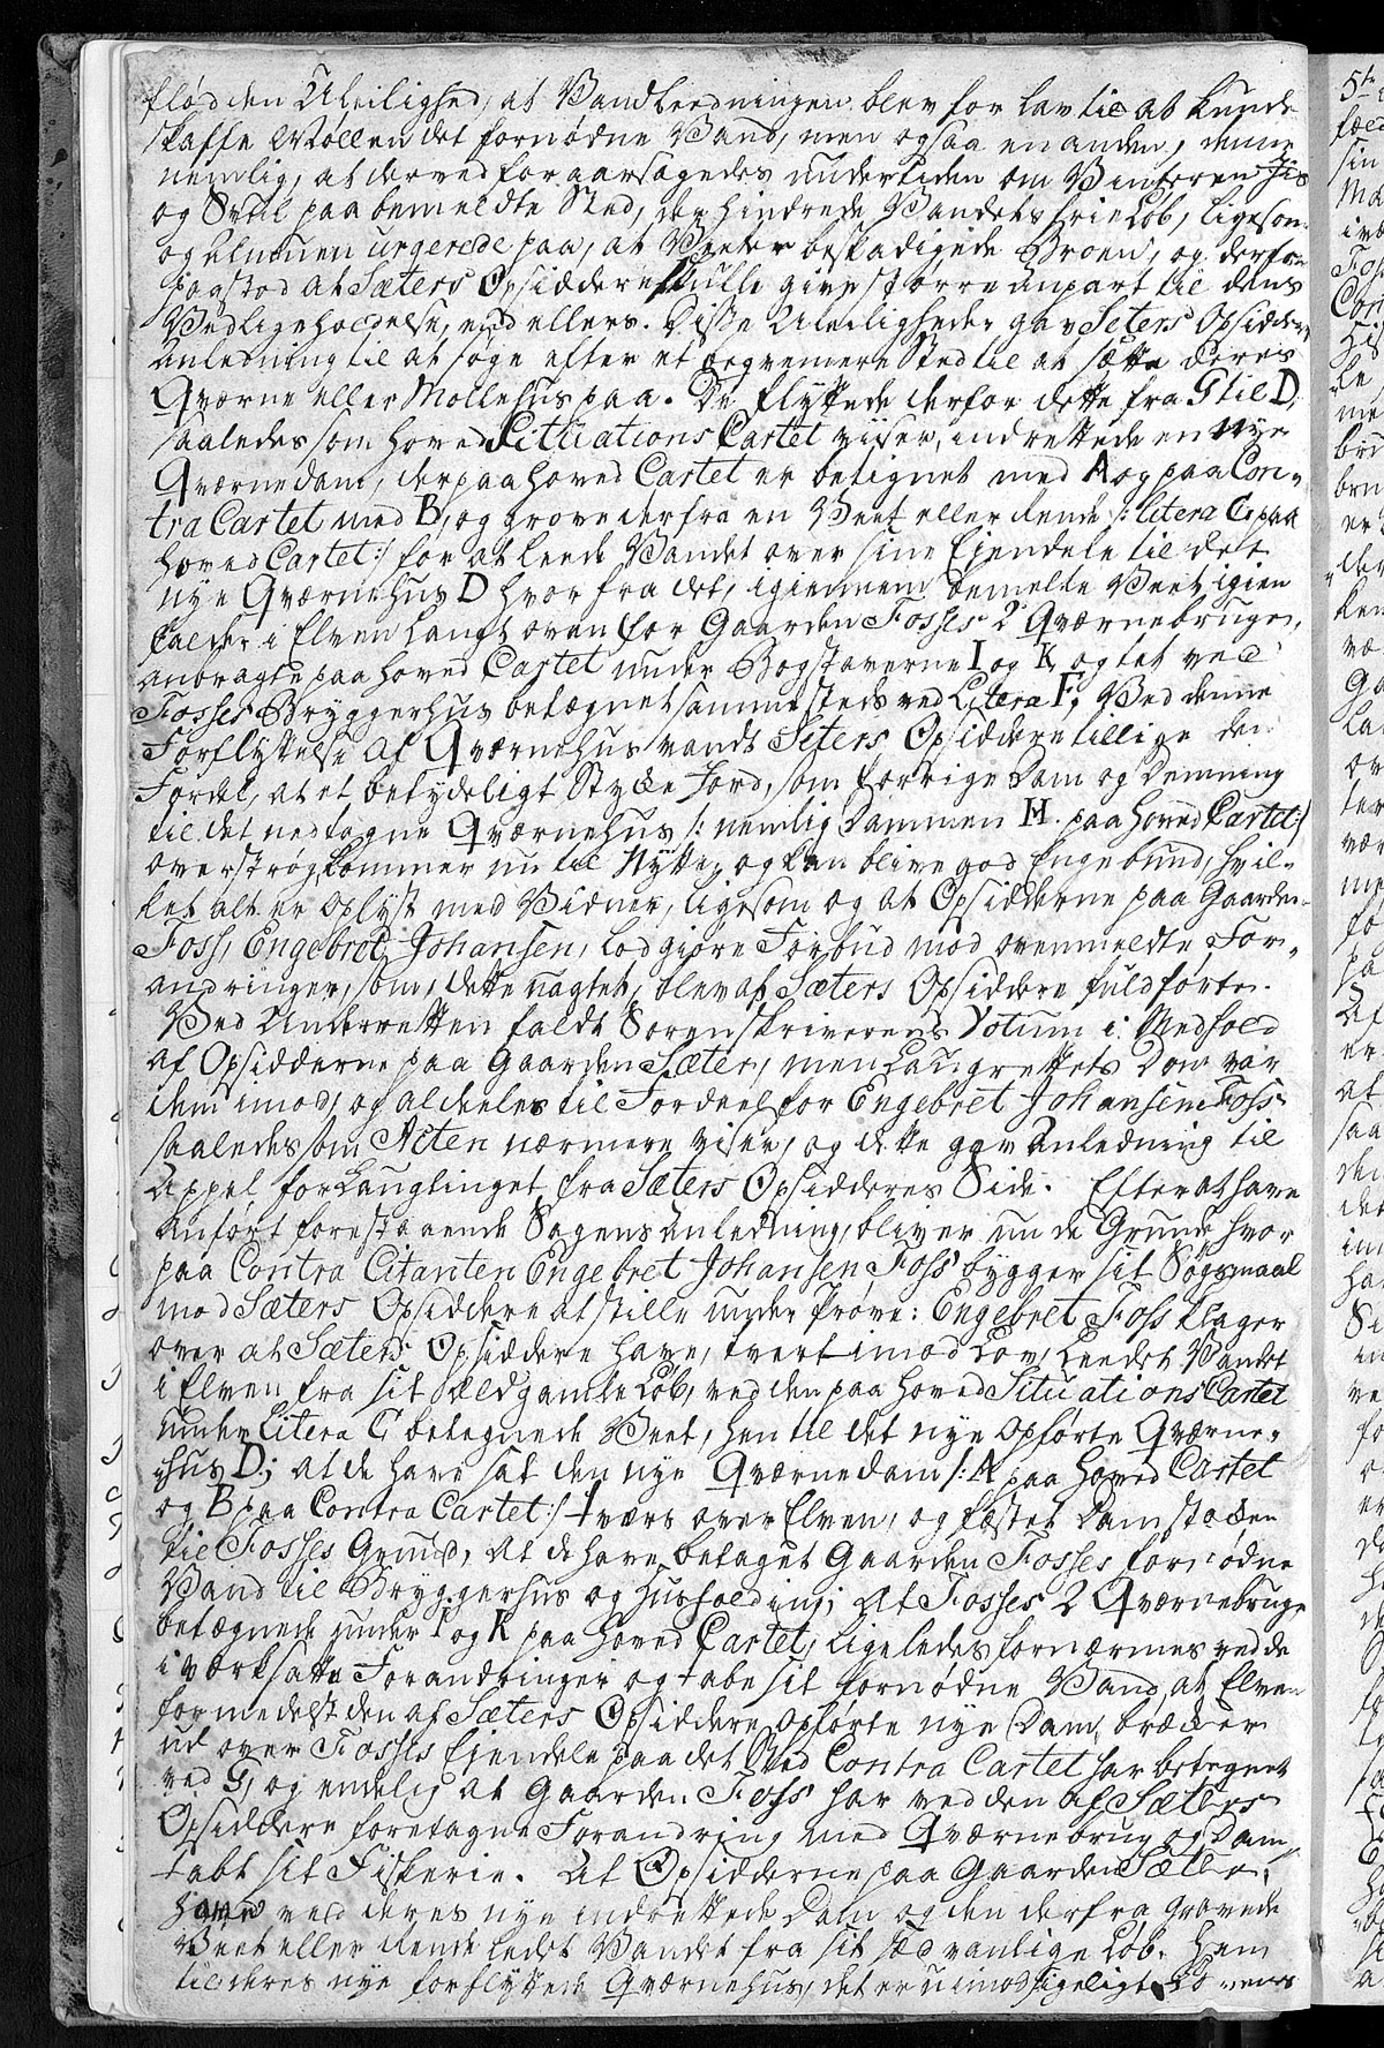 flød den Uleilighed, at Vandledningen blev for lav til at kunde
skaffe Møllen det fornødne Vand, men ogsaa en anden, denne
nemlig, at derved foraarsagedes undertiden om Vinteren Jis
og Svæl paa bemeldte Sted, der hindrede Vandets frie Løb, ligesom
og Almuen urgerede paa, at Veeten beskadigede Broen, og derfor
paastod at Sæters Opsiddere skulle give større Anpart til dens
Vedligeholdelse, end ellers. Disse Uleiligheder gav Seters Opsiddere
Anledning til at søge efter et beqvemere Sted til at sætte deres
Qværne eller Møllehus paa. De flyttede derfor dette fra G til D,
saaledes som Hoved Situations Cartet viiser, indrettede en nye
Qværnedam, der paa Hoved Cartet er betignet med A og paa Con-
tra Cartet med B, og grove derfra en Veet eller Rende /: Litera C paa
Hoved Cartet :/ for at leede Vandet over sine Ejendele til det
nye Qværnehus D hvor fra det, igiennem bemelte Veet igien
falder i Elven langt oven for Gaarden Fosses 2 Qværnebruger,
anbragte paa Hoved Cartet under Bogstaverne I og K, og tet ved
Fosses Bryggerhus betægnet sammesteds ved Litera F. Ved denne
Forflyttelse af Qværnehus vandt Seters Opsiddere tillige den
Fordel, at et betydeligt Stycke Jord, som forrige Dam og Demning
til det nedtagne Qværnehus /: nemlig Dammen H. paa Hoved Cartet :/
overstrøg, kommer nu til Nytte, og kan blive god Engebund, hvil-
ket alt er oplyst med Vidner, ligesom og at Opsidderne paa Gaarden
Foss, Engebret Johansen, lod giøre Forbud mod ovenmeldte For-
andringer, som, dette uagtet, blev af Sæters Opsiddere fuldførte.
Ved Underretten faldt Sorenskriverens Votum i Medhold
af Opsidderne paa Gaarden Sæter, men Laugrettets Dom var
dem imod, og aldeeles til Fordeel for Engebret Johansen Foss
saaledes som Acten nærmere viser, og dette gav Anledning til
Appel for Laugtinget fra Sæters Opsidderes Side. Efter at have
anført forestaaende Sagens Anledning, bliver nu de Grunde hvor
paa Contra Citanten Engebret Johansen Foss bygger sit Søgsmaal
mod Sæters Opsiddere at stille under Prøve: Engebret Foss klager
over at Sæters Opsiddere have, tvertimod Lov, Leedet Vandet
i Elven fra sit ældgamle Løb, ved den paa Hoved Situations Cartet
under Litera C betegnede Veet, hen til det nye opførte Qværne-
hus D; at de have sat den nye Qværnedam /: A paa Hoved Cartet
og B paa Contra Cartet :/ tværs over Elven, og fæstet Damstocken
til Fosses Grund, at de have betaget Gaarden Fosses fornødne
Vand til Bryggerhus og Husholding; at Fosses 2 Qværnebruge
betægnede under I og K paa Hoved Cartet, ligeledes fornærmes ved de
iværksatte Forandringer og tabe sit fornødne Vand, at Elven
formedelst den af Sæters Opsiddere opførte nye Dam, bræcker
ud over Fosses Ejendele paa det Sted Contra Cartet har betegnet
ved G, og endelig at Gaarden Foss har ved den af Sæters
Opsiddere foretagne Forandring med Qværnebrug og Dam
tabt sit Fiskerie. At Opsidderne paa Gaarden Sæter,
have ved deres nye indrettede Dam og den derfra gravede
Veet eller Rende ledet Vandet fra sit sædvanlige Løb hen
til deres nye forflyttede Qværnehus, det er uimodsigeligt